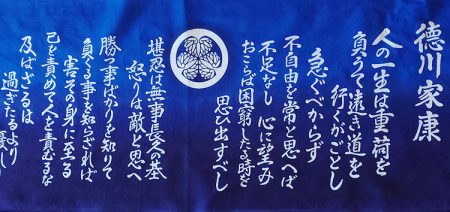 徳川家康
人の一生は重荷を
負うて遠き道を
行くがごとし
急ぐべからず
不自由を常と思へば
不足なし 心に望み
おこらば困窮したる時を
思ひ出すべし
堪忍は無事長久の基
怒りは敵と思へ
勝つ事ばかりを知りて
負くる事を知らざれば
害その身に至る
己を責めて人を責むるな
及ばざるは
過ぎたるより